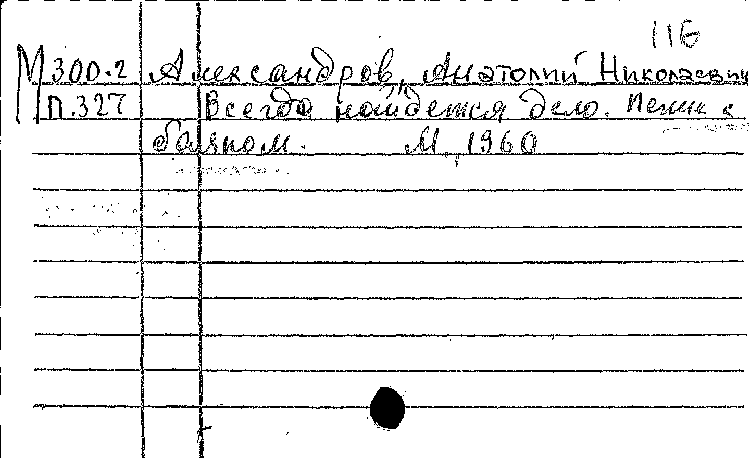 116
М 300.2 Александров, Анатолий Николаевич
П.327 Всегда найдется дело. Пение с
баяном. М., 1960